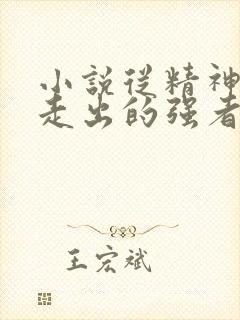 小說從精神
走出的强者
王宏斌